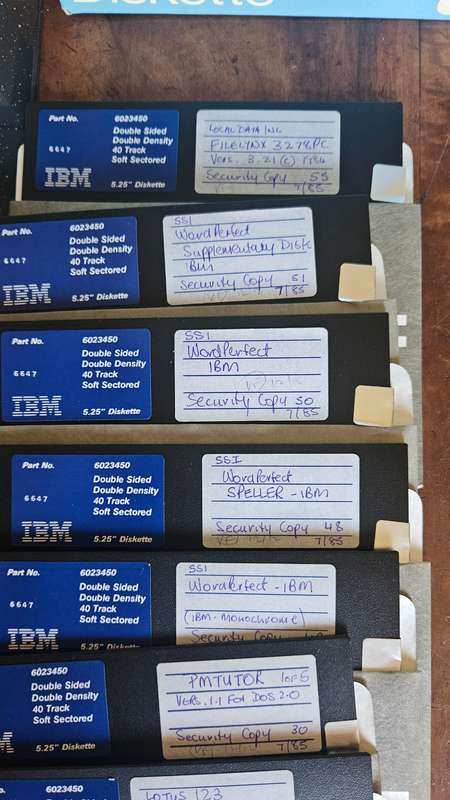 Diskette
Part No. 6023450
Double Sided
Double Density
6647
40 Track
Soft Sectored
IBM
5.25" Diskette
LOCAL DATA INC
FILELYNX 3278PC
Vers. 3.21 (c) 1984
Security Copy 55
7/85
6023450
Double Sided
Double Density
6647
40 Track
Soft Sectored
IBM
5.25" Diskette
SSI
WordPerfect
Supplementary Disk
IBM
Security Copy 51
7/85
Part No. 6023450
Double Sided
Double Density
6647
40 Track
Soft Sectored
IBM
5.25" Diskette
SSI
WordPerfect
IBM
Security Copy 50
7/85
Part No. 6023450
Double Sided
Double Density
6647
40 Track
Soft Sectored
IBM
5.25" Diskette
SSI
WordPerfect
SPELLER - IBM
Security Copy 48
7/85
Part No. 6023450
Double Sided
Double Density
6647
40 Track
Soft Sectored
IBM
5.25" Diskette
SSI
WordPerfect - IBM
(IBM - Monochrome)
Security Copy
6023450
Double Sided
Double Density
40 Track
Soft Sectored
5.25" Diskette
PMTUTOR 1 of 6
VERS. 1.1 FOR DOS 2.0
Security Copy 30
7/85
LOTUS 123